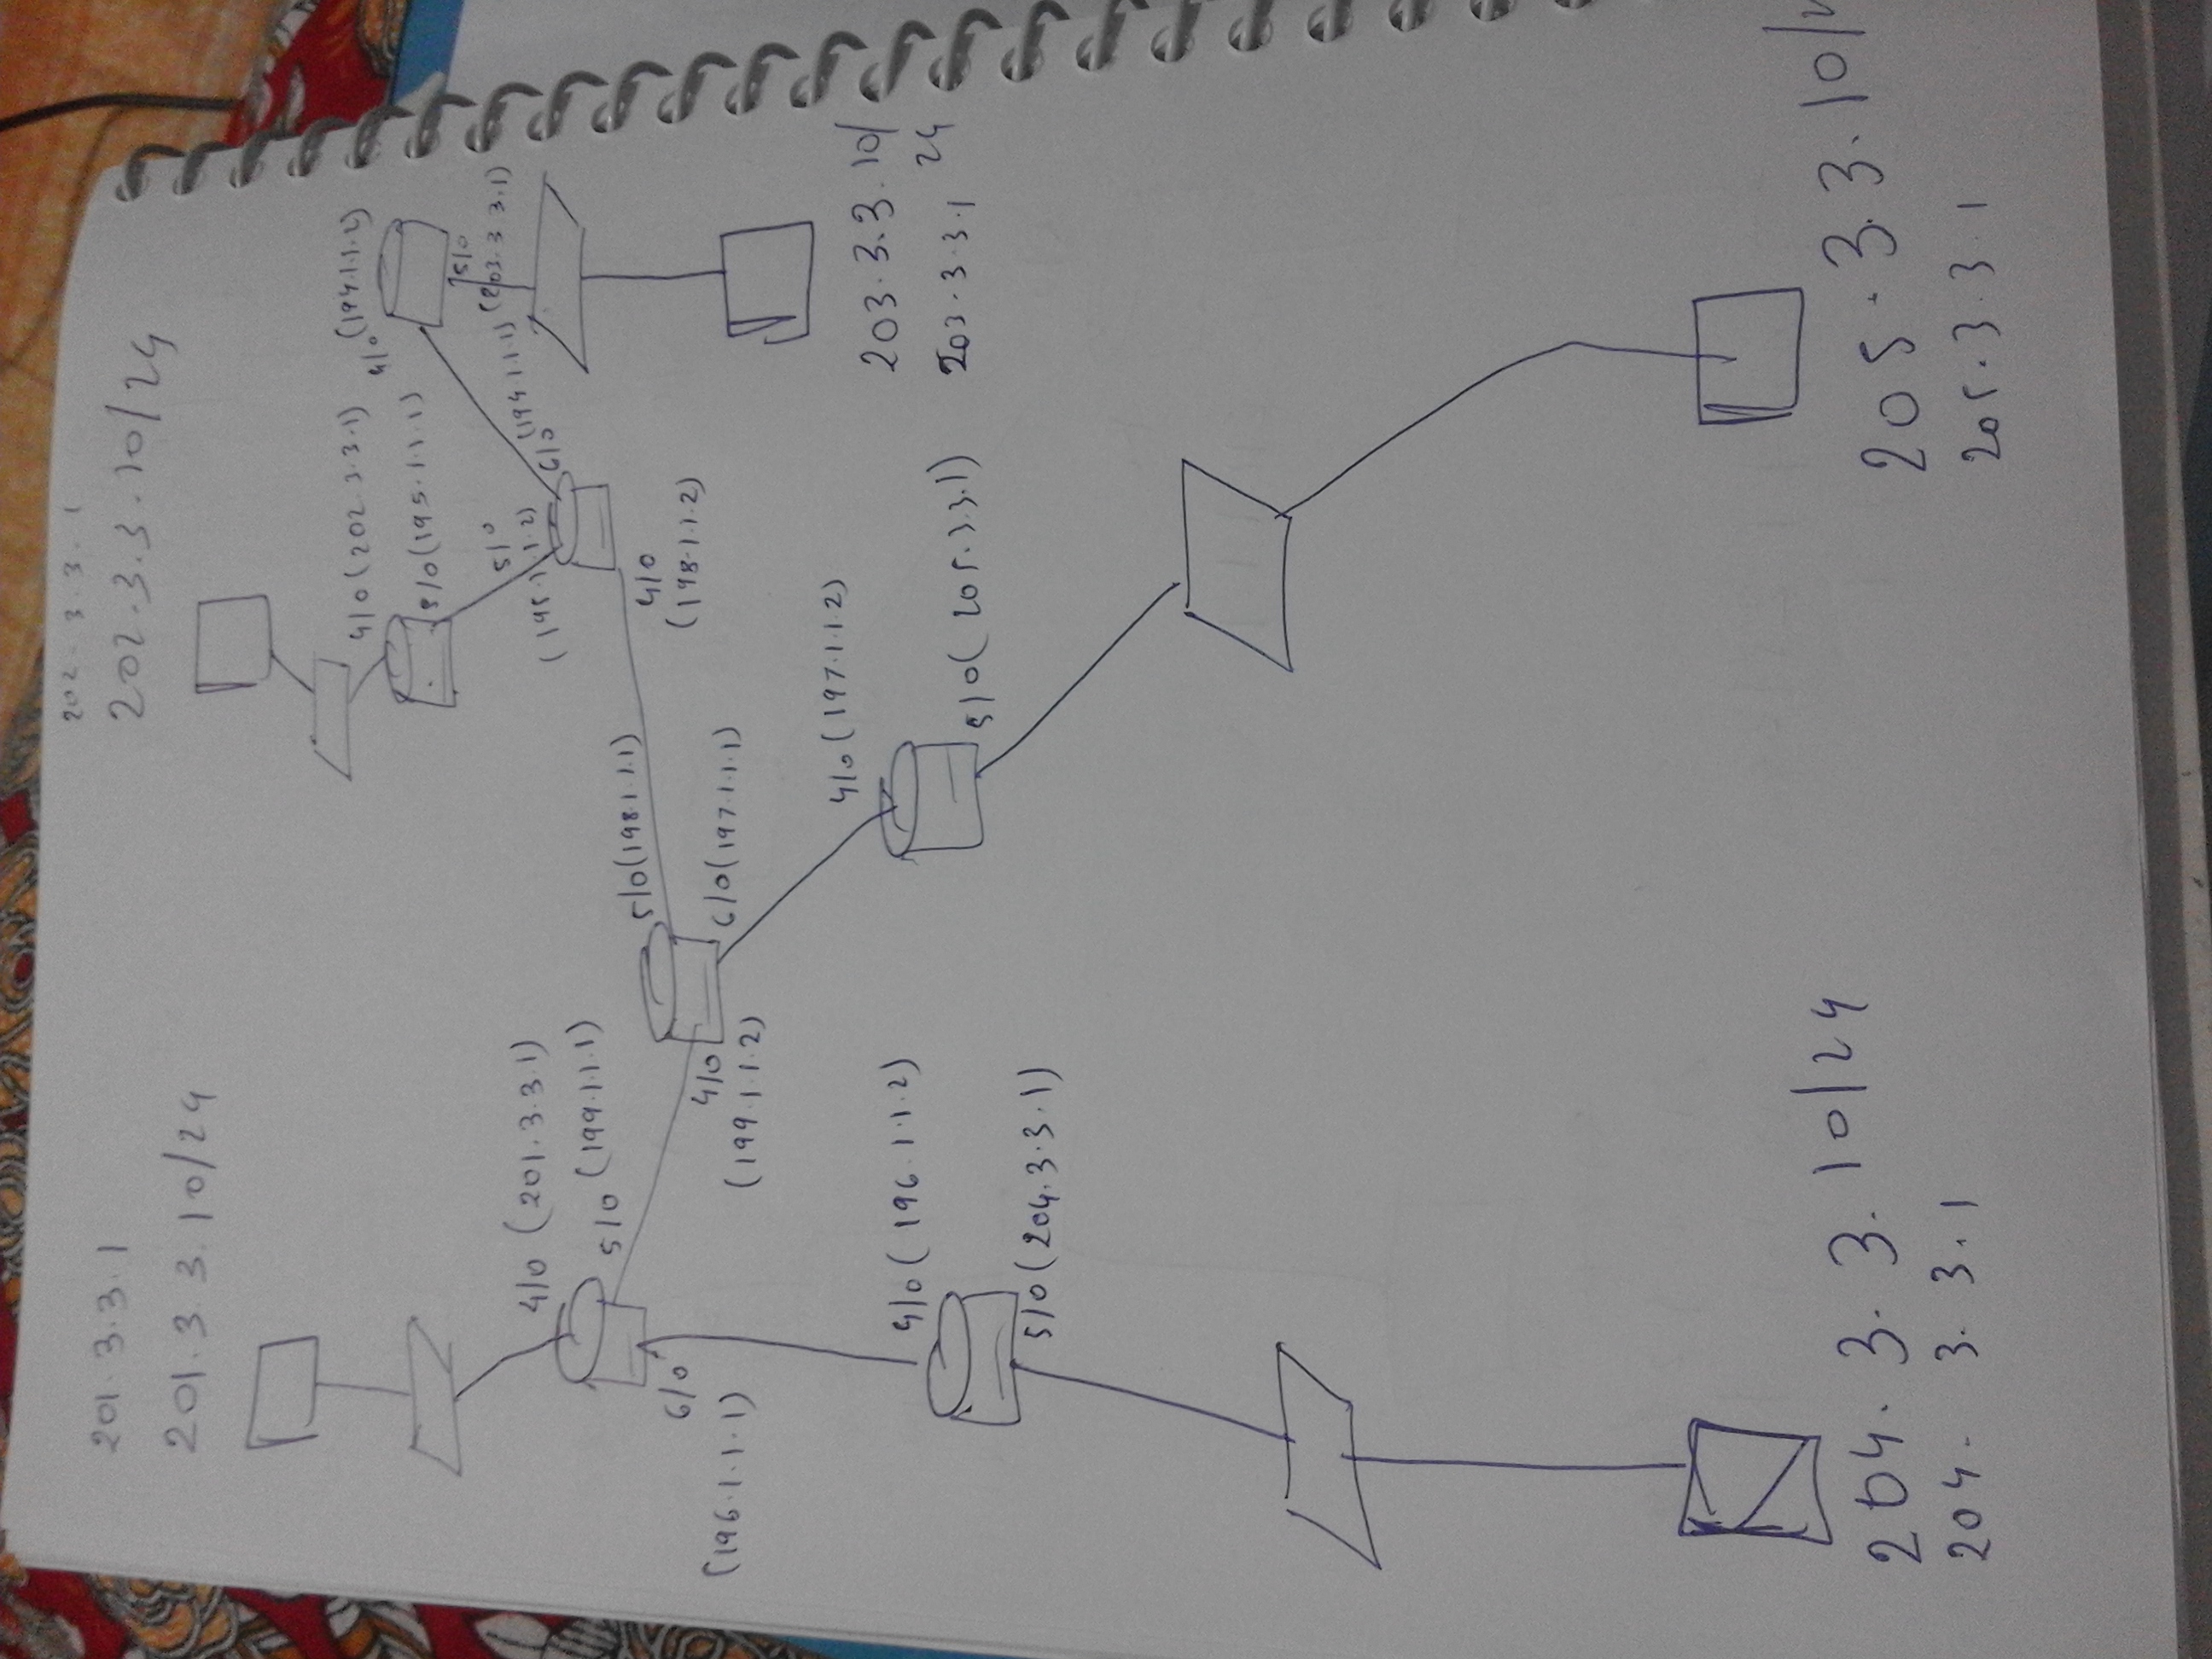 201.3.3.1
201.3.3.10/24
202.3.3.1
202.3.3.10/24
4/0 (202.3.3.1)
4/0 (194.1.1.2)
5/0 (195.1.1.1)
5/0
(203.3.3.1)
5/0
(195.1.1.2)
6/0 (194.1.1.1)
4/0 (201.3.3.1)
5/0 (199.1.1.1)
6/0
(196.1.1.1)
4/0
(199.1.1.2)
5/0 (198.1.1.1)
6/0 (197.1.1.1)
4/0
(198.1.1.2)
4/0 (197.1.1.2)
5/0 (205.3.3.1)
203.3.3.10/
24
203.3.3.1
4/0 (196.1.1.2)
5/0 (204.3.3.1)
204.3.3.10/24
204.3.3.1
205.3.3.10/2
205.3.3.1